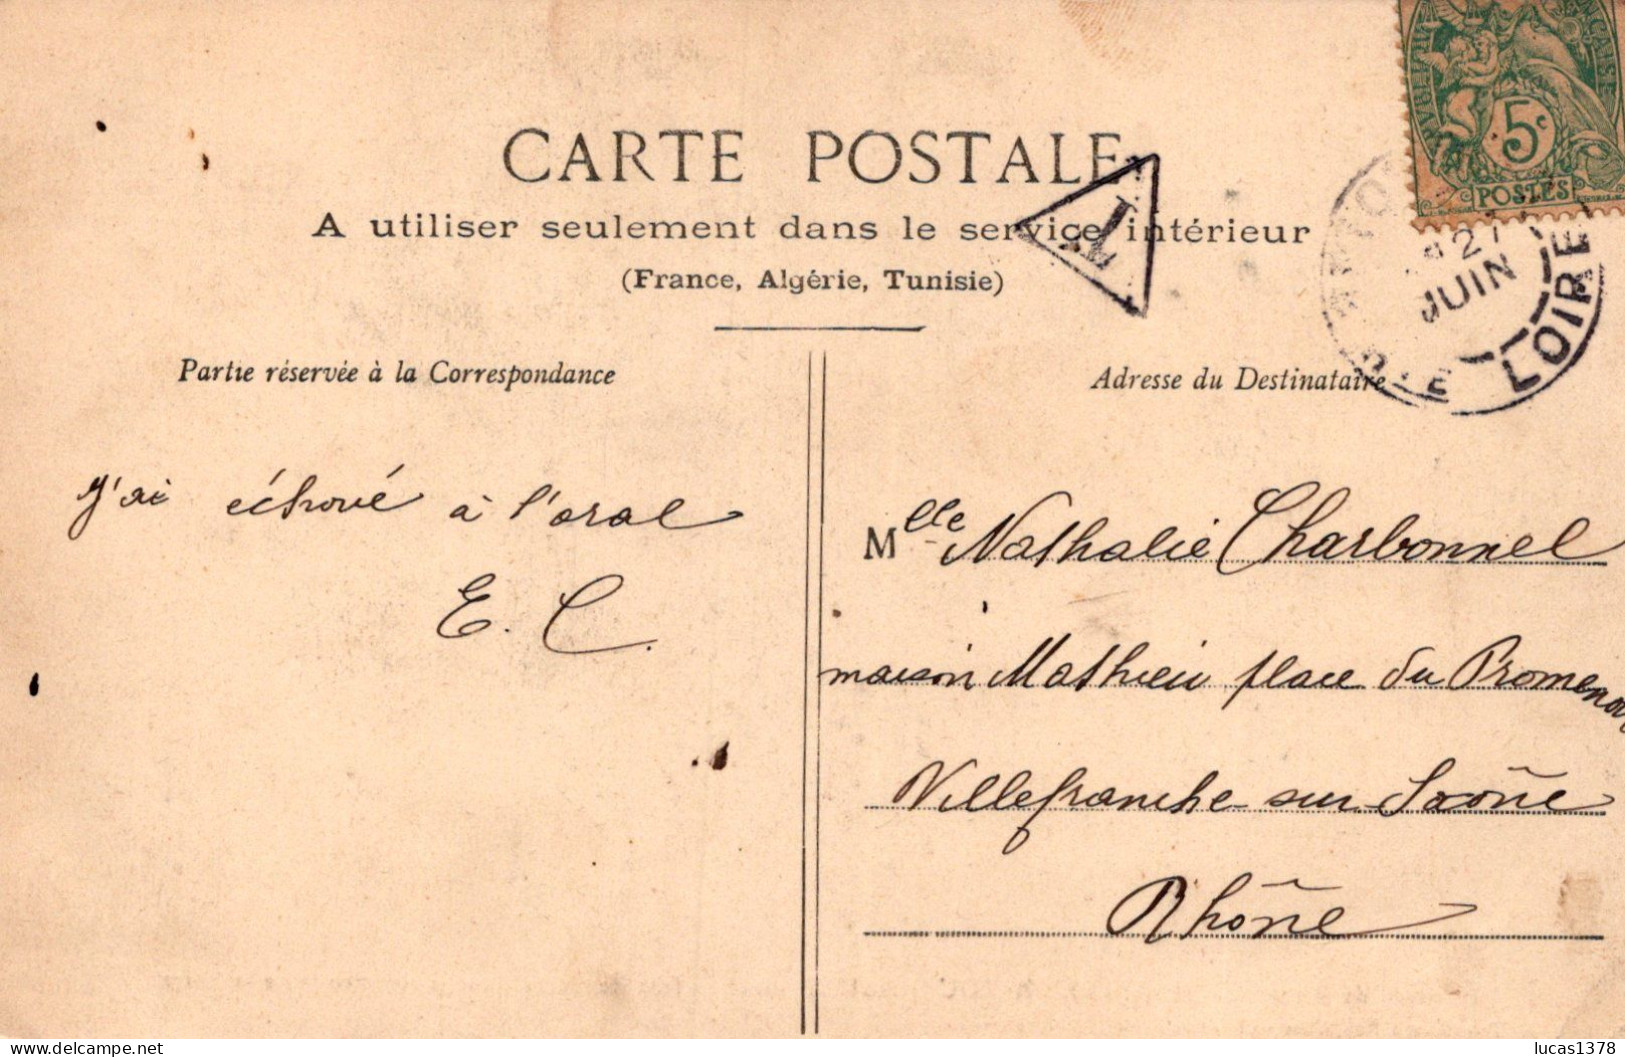 CARTE POSTALE
A utiliser seulement dans le service intérieur
(France, Algérie, Tunisie)
T
5c
POSTES
27
JUIN
LOIRE
Partie réservée à la Correspondance
J'ai échoué à l'oral
E. C.
Adresse du Destinataire
Mlle Nathalie Charbonnel
maison Mathieu place du Promenoir
Villefranche sur Saône
Rhône
lucas1378